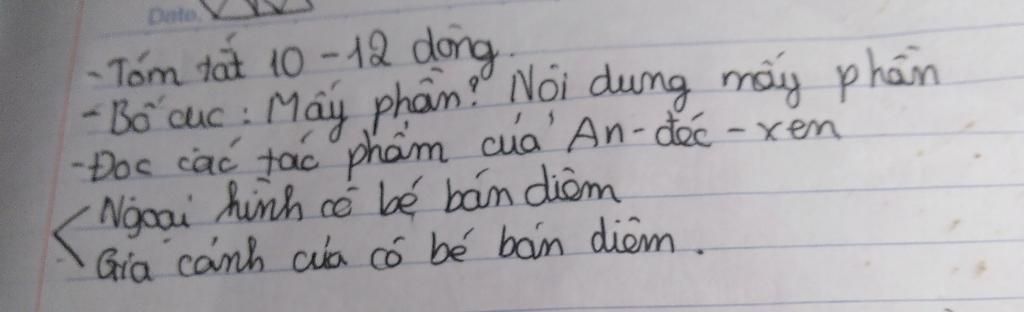 Date.
- Tóm tắt 10 - 12 dòng.
- Bố cục : Mấy phần? Nội dung mấy phần
- Đọc các tác phẩm của An - đéc - xen
Ngoại hình cô bé bán diêm
Gia cảnh của cô bé bán diêm.